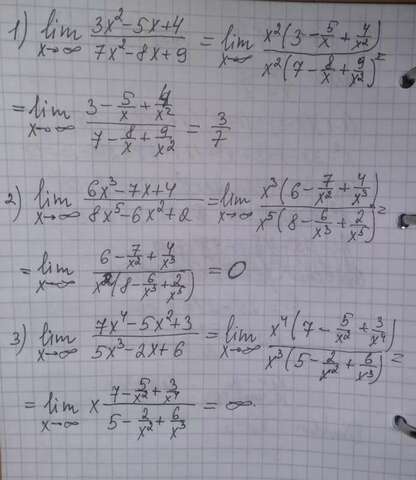 1) lim x→∞ (3x²-5x+4)/(7x²-8x+9) = lim x→∞ (x²(3-5/x+4/x²))/(x²(7-8/x+9/x²)) =
= lim x→∞ (3-5/x+4/x²)/(7-8/x+9/x²) = 3/7
2) lim x→∞ (6x³-7x+4)/(8x⁵-6x²+2) = lim x→∞ (x³(6-7/x²+4/x³))/(x⁵(8-6/x³+2/x⁵)) =
= lim x→∞ (6-7/x²+4/x³)/(x²(8-6/x³+2/x⁵)) = 0
3) lim x→∞ (7x⁴-5x²+3)/(5x³-2x+6) = lim x→∞ (x⁴(7-5/x²+3/x⁴))/(x³(5-2/x²+6/x³)) =
= lim x→∞ x (7-5/x²+3/x⁴)/(5-2/x²+6/x³) = ∞.